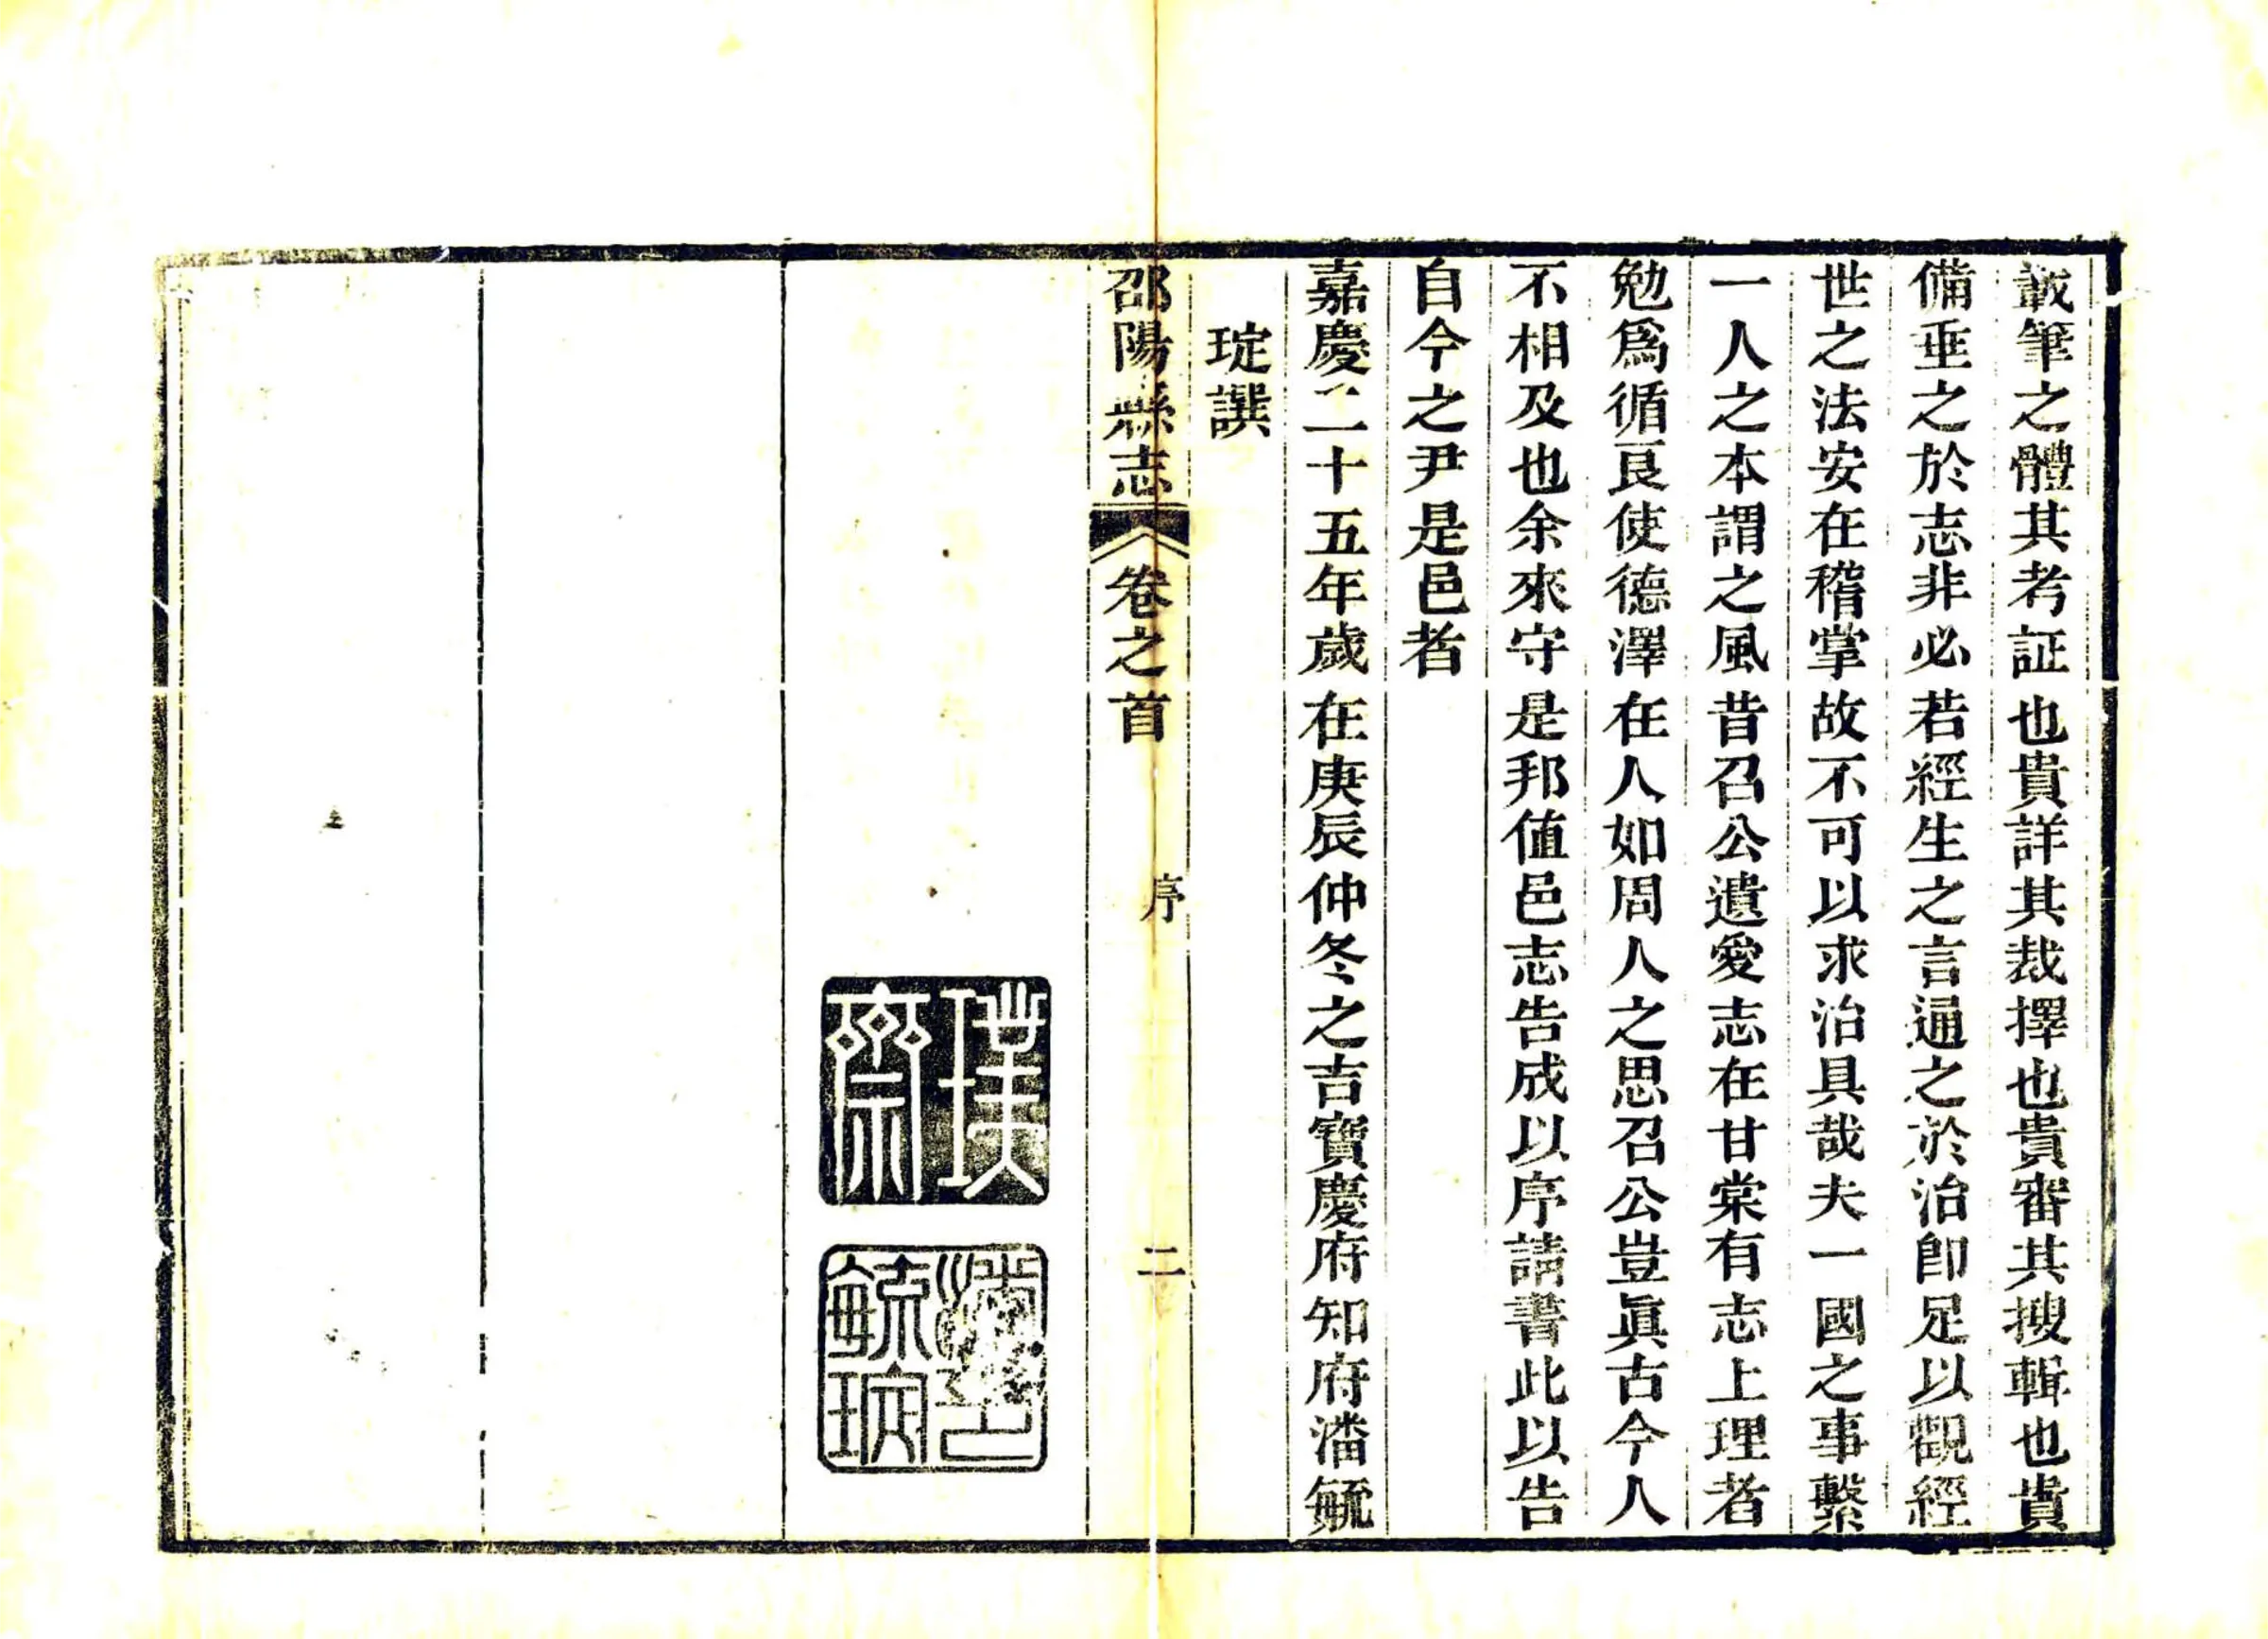 載筆之體其考証也貴詳其裁擇也貴審其搜輯也貴
備垂之於志非必若經生之言通之於治卽足以觀經
世之法安在稽掌故不可以求治具哉夫一國之事繫
一人之本謂之風昔召公遺愛志在甘棠有志上理者
勉爲循良使德澤在人如周人之思召公豈眞古今人
不相及也余來守是邦值邑志告成以序請書此以告
自今之尹是邑者
嘉慶二十五年歲在庚辰仲冬之吉寶慶府知府潘毓
琔譔
邵陽縣志 卷之首 序 二
璞齋
潘印毓琔